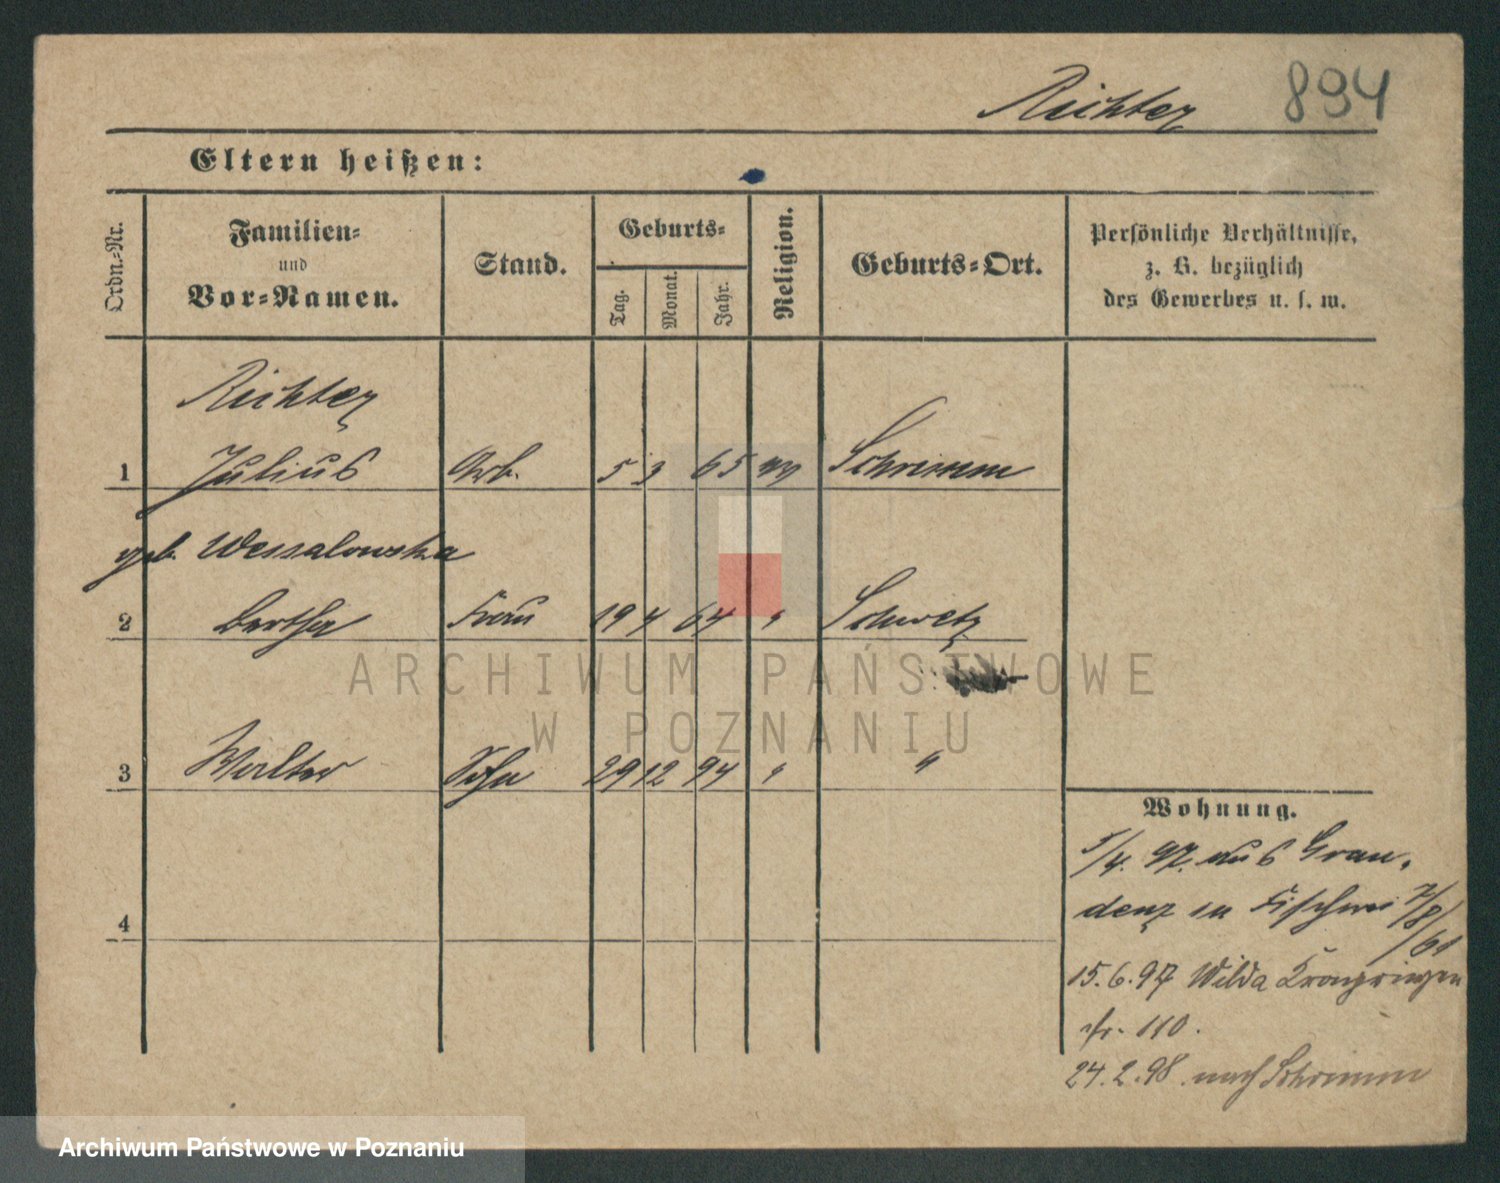 Richter 894
Eltern heißen:
Ordn.-Nr.
Familien-
und
Vor-Namen.
Stand.
Geburts-
Tag.
Monat.
Jahr.
Religion.
Geburts-Ort.
Persönliche Verhältnisse,
z. B. bezüglich
des Gewerbes u. s. w.
Richter
1 Julius Arb. 5 3 65 Schrimm
geb. Wessalowska
2 Bertha Frau 19 4 64 " Schwetz
3 Walter Sohn 29 12 94 " "
4
Wohnung.
1/4. 97. aus Grau-
denz in Fischerei 7/8/61
15.6.97 Wilda Kronprinzen
str. 110.
24.2.98. nach Schrimm
ARCHIWUM PAŃSTWOWE
W POZNANIU
Archiwum Państwowe w Poznaniu